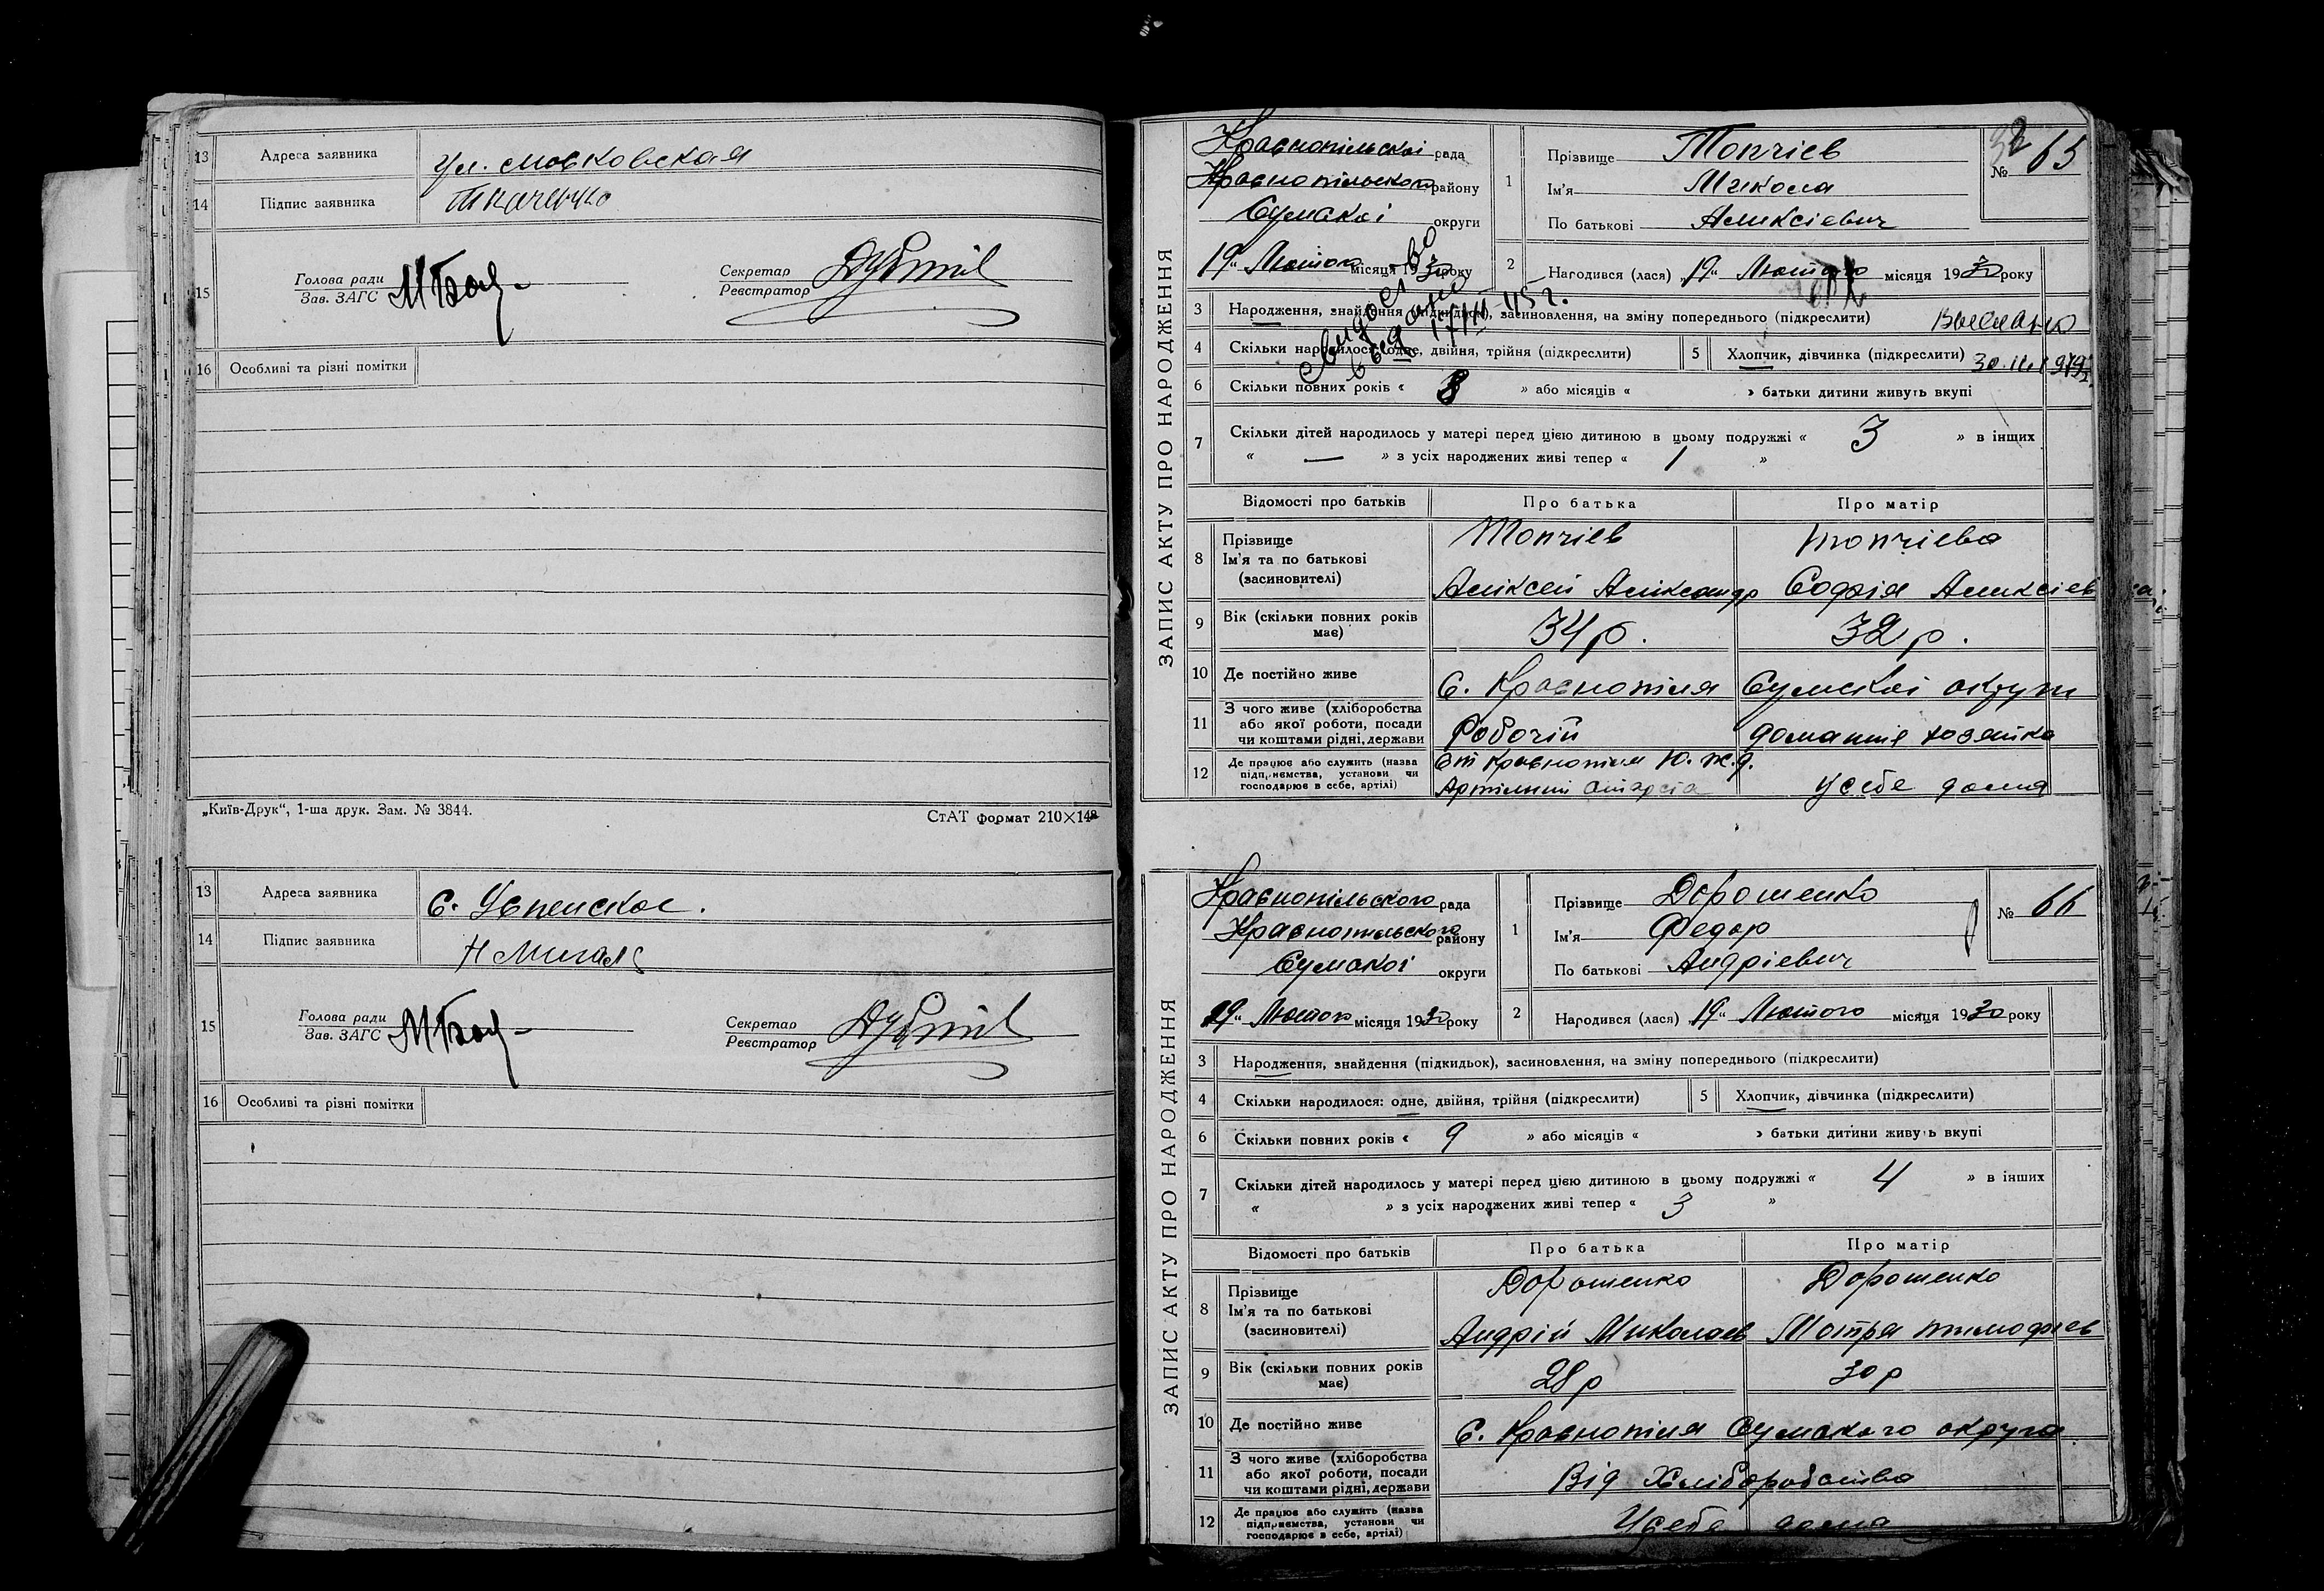 13 Адреса заявника ул. Московская
14 Підпис заявника Ткаченко
15 Голова ради
Зав. ЗАГС
Секретар
Реєстратор
16 Особливі та різні помітки
„Київ-Друк“, 1-ша друк. Зам. № 3844.
СтАТ формат 210×148
13 Адреса заявника С. Успенское.
14 Підпис заявника
15 Голова ради
Зав. ЗАГС
Секретар
Реєстратор
16 Особливі та різні помітки
ЗАПИС АКТУ ПРО НАРОДЖЕННЯ
Краснопільскої рада
Краснопільского району
Сумскої округи
„19“ Лютого місяця 1930 року
1 Прізвище Топчієв
Ім'я Микола
По батькові Аликсієвич
32
№ 65
2 Народився (лася) „19“ Лютого місяця 1930 року
свидост-во
видано
17/III 45 г.
3 Народження, знайдення (підкидьок), засиновлення, на зміну попереднього (підкреслити)
Выслано
4 Скільки народилося: одне, двійня, трійня (підкреслити) 5 Хлопчик, дівчинка (підкреслити)
6 Скільки повних років « 8 » або місяців « » батьки дитини живуть вкупі
7 Скільки дітей народилось у матері перед цією дитиною в цьому подружжі « 3 » в інших
« — » з усіх народжених живі тепер « 1 »
Відомості про батьків Про батька Про матір
8 Прізвище
Ім'я та по батькові
(засиновителі)
Топчієв Топчієва
Аліксей Аліксандр Софія Аликсієв
9 Вік (скільки повних років має) 34 р. 32 р.
10 Де постійно живе С. Краснопілля Сумскої округи
11 З чого живе (хліборобства
або якої роботи, посади
чи коштами рідні, держави
Робочій домашнія хозяйка
12 Де працює або служить (назва
підприємства, установи чи
господарює в себе, артілі)
Ст Краснопілля Ю. ж. д.
Артільний
У себе дома
ЗАПИС АКТУ ПРО НАРОДЖЕННЯ
Краснопільского рада
Краснопільского району
Сумскої округи
„19“ Лютого місяця 1930 року
1 Прізвище Дорошенко
Ім'я Федор
По батькові Андрієвич
№ 66
2 Народився (лася) „19“ Лютого місяця 1930 року
3 Народження, знайдення (підкидьок), засиновлення, на зміну попереднього (підкреслити)
4 Скільки народилося: одне, двійня, трійня (підкреслити) 5 Хлопчик, дівчинка (підкреслити)
6 Скільки повних років « 9 » або місяців « » батьки дитини живуть вкупі
7 Скільки дітей народилось у матері перед цією дитиною в цьому подружжі « 4 » в інших
« » з усіх народжених живі тепер « 3 »
Відомості про батьків Про батька Про матір
8 Прізвище
Ім'я та по батькові
(засиновителі)
Дорошенко Дорошенко
Андрій Миколаєв Мотря Тимофієв
9 Вік (скільки повних років має) 28 р 30 р
10 Де постійно живе С. Краснопілля Сумского округа
11 З чого живе (хліборобства
або якої роботи, посади
чи коштами рідні, держави
Від Хліборобства
12 Де працює або служить (назва
підприємства, установи чи
господарює в себе, артілі)
У себе дома